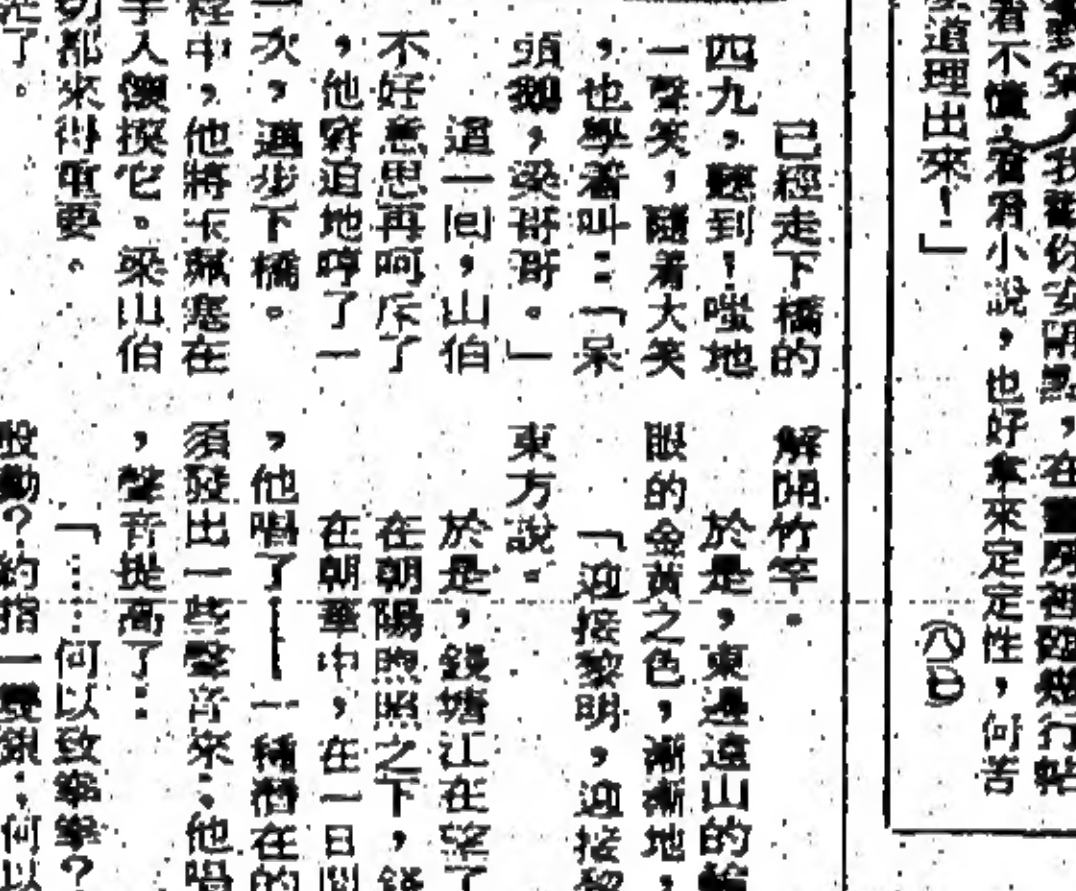 我勸你安閒點,在
看不懂
小說,也好拿來定定性,何苦
道理出來!」
㈧
已經走下橋的
四九,聽到!嗤地
一聲笑,隨着大笑
,也學着叫:「呆
頭鵝,梁哥哥。」
這一回,山伯
不好意思再呵斥了
,他窘迫地哼了一
次,邁步下橋。
程中,他將玉珮塞在
手入懷摸它。梁山伯
切都來得重要。
了。
解開竹竿。
於是,東邊遠山的輪
眼的金黃之色,漸漸地,
「迎接黎明,迎接黎
東方說。
於是,錢塘江在望了
在朝陽煦照之下,錢
在朝華中,在一日
,他唱了——一種潛在的
須發出一些聲音來。他唱
,聲音提高了:
「……何以致拳拳?
殷勤?約指一雙銀;何以